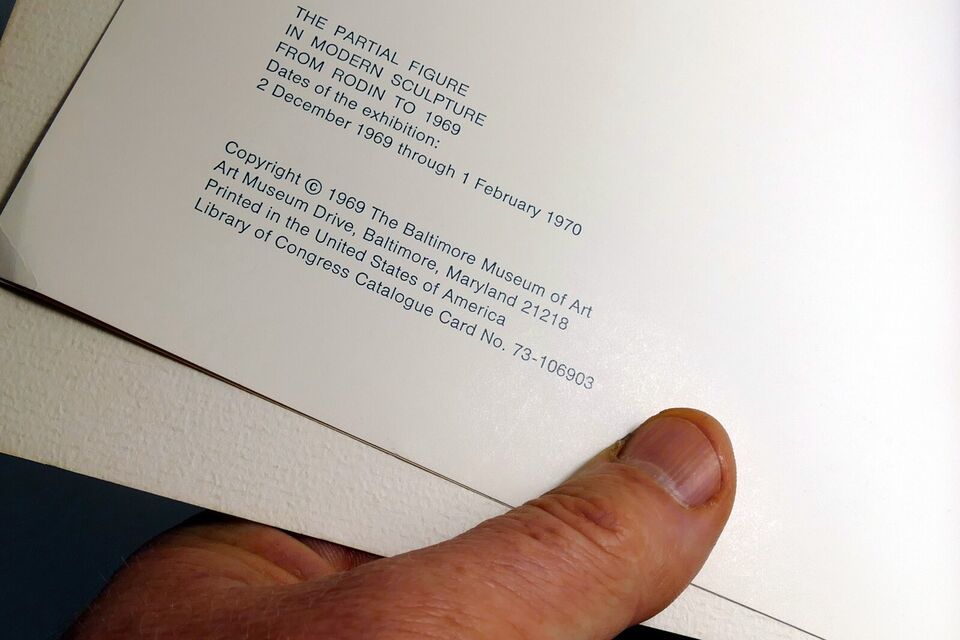 THE PARTIAL FIGURE
IN MODERN SCULPTURE
FROM RODIN TO 1969
Dates of the exhibition:
2 December 1969 through 1 February 1970
Copyright © 1969 The Baltimore Museum of Art
Art Museum Drive, Baltimore, Maryland 21218
Printed in the United States of America
Library of Congress Catalogue Card No. 73-106903